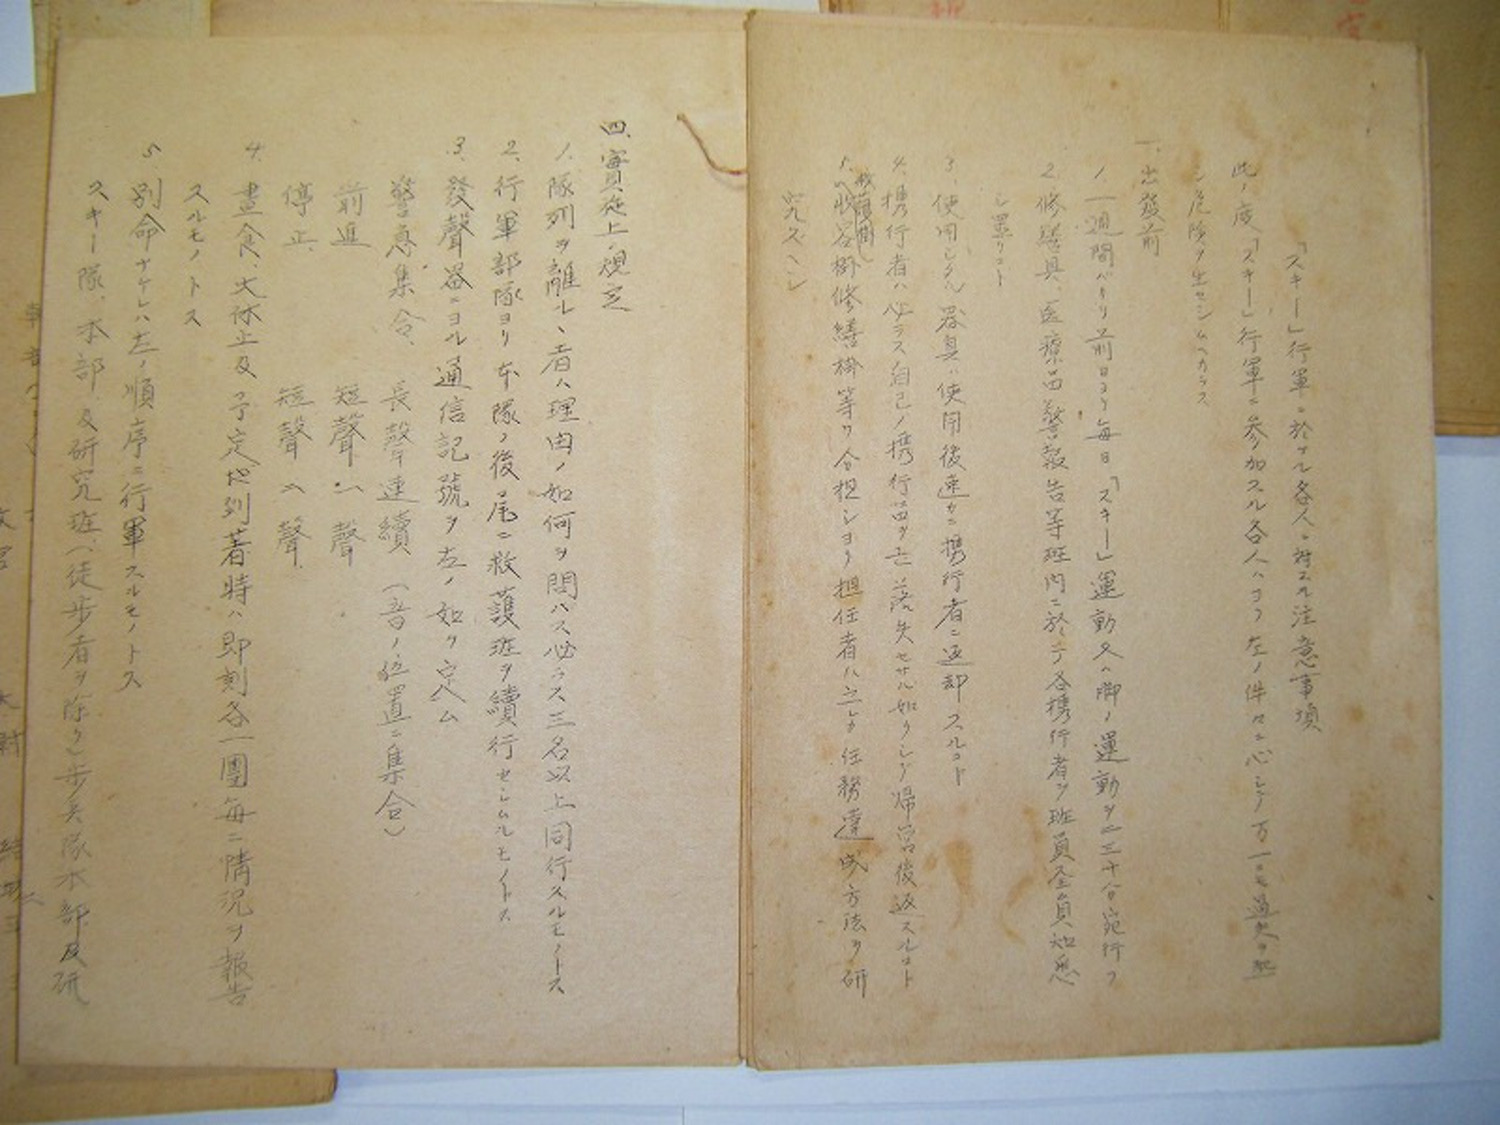 「スキー」行軍ニ於ケル各人ニ対スル注意事項
此ノ度「スキー」行軍ニ参加スル各人ハヨク左ノ件々ニ心シテ万一ニモ過失ヲ
シ危険ヲ生セシムヘカラス
一、出發前
1. 一週間バカリ前日ヨリ毎日「スキー」運動又ハ脚ノ運動ヲ二三十分宛行フ
2. 修繕具、医療品、警報告等班内ニ於テ各携行者ヲ班員全員知悉
シ置クコト
3. 使用シタル器具ハ使用後速カニ携行者ニ返却スルコト
4. 携行者ハ必ラス自己ノ携行品ヲ亡落失セサル如クシテ帰営後返スルコト
5. 修繕掛等ヲ分担シヨリ担任者ハ之レカ任務達成方法ヲ研
究スヘシ
四、實施上ノ規定
1. 隊列ヲ離ルヽ者ハ理由ノ如何ヲ問ハス必ラス三名以上同行スルモノトス
2. 行軍部隊ヨリ本隊ノ後尾ニ救護班ヲ續行セシムルモノトス
3. 發聲器ニヨル通信記號ヲ左ノ如ク定ム
警急集合、 長聲連續 (吾ノ位置ニ集合)
前進 短聲一聲
停止、 短聲二聲
4. 晝食、大休止及予定地到著時ハ即刻各一團毎ニ情況ヲ報告
スルモノトス
5. 別命ナケレハ左ノ順序ニ行軍スルモノトス
スキー隊、本部、及研究班(徒歩者ヲ除ク)歩兵隊本部及研